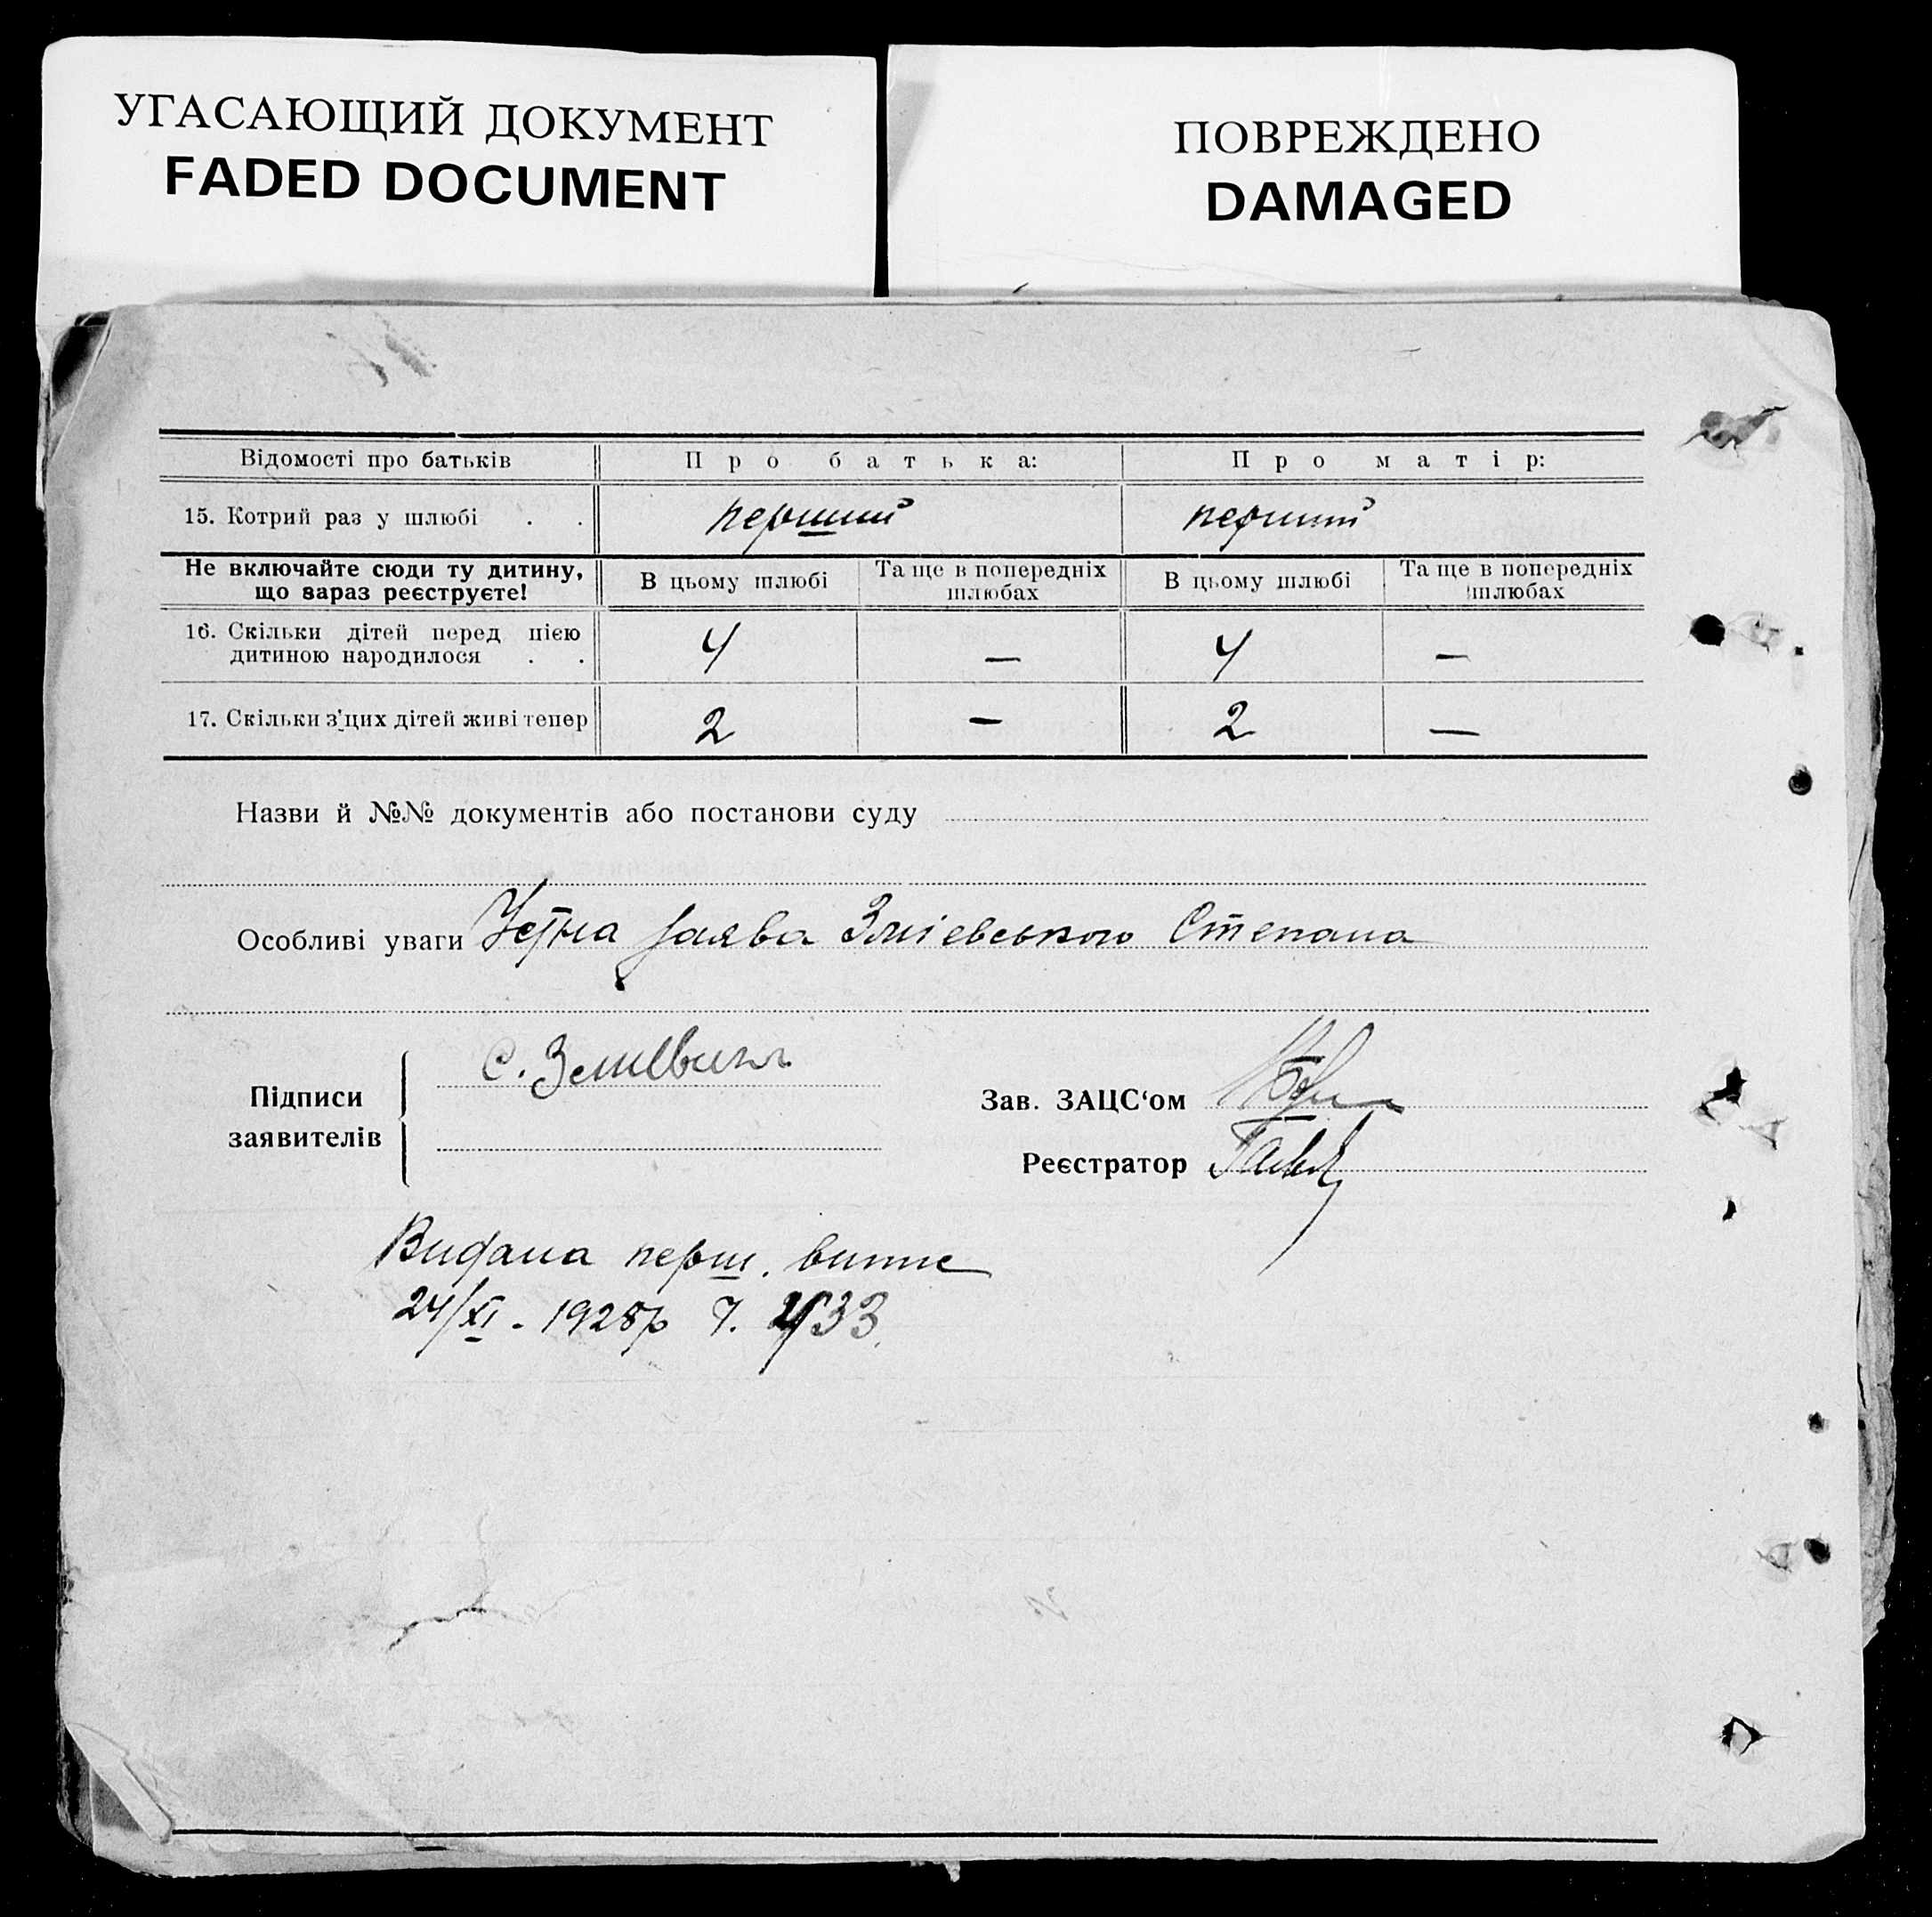 УГАСАЮЩИЙ ДОКУМЕНТ
FADED DOCUMENT
ПОВРЕЖДЕНО
DAMAGED
Відомості про батьків Про батька: Про матір:
15. Котрий раз у шлюбі . . перший перший
Не включайте сюди ту дитину, що зараз реєструєте! В цьому шлюбі Та ще в попередніх шлюбах В цьому шлюбі Та ще в попередніх шлюбах
16. Скільки дітей перед цією
дитиною народилося . . 4 — 4 —
17. Скільки з'цих дітей живі тепер 2 — 2 —
Назви й №№ документів або постанови суду
Особливі уваги Устна заява Зміевського Степана
Підписи
заявителів
С.
Зав. ЗАЦС‘ом
Реєстратор
Видана перш. випис
24/XI - 1928р Ч. 33